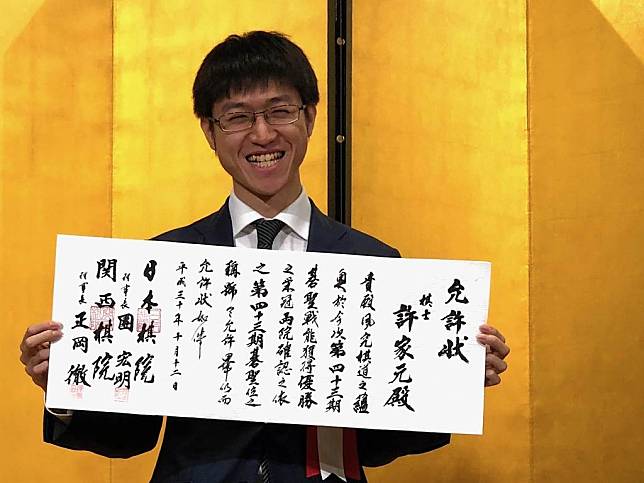 允許状
棋士
許家元殿
貴殿夙允棋道之蘊
奥於今次第四十三期
碁聖戦能獲得優勝
之栄冠両院確認之依
之第四十三期碁聖位之
称號令允許畢仍而
允許状如件
平成三十年十月十二日
日本棋院
理事長 團宏明
関西棋院
理事長 正岡徹